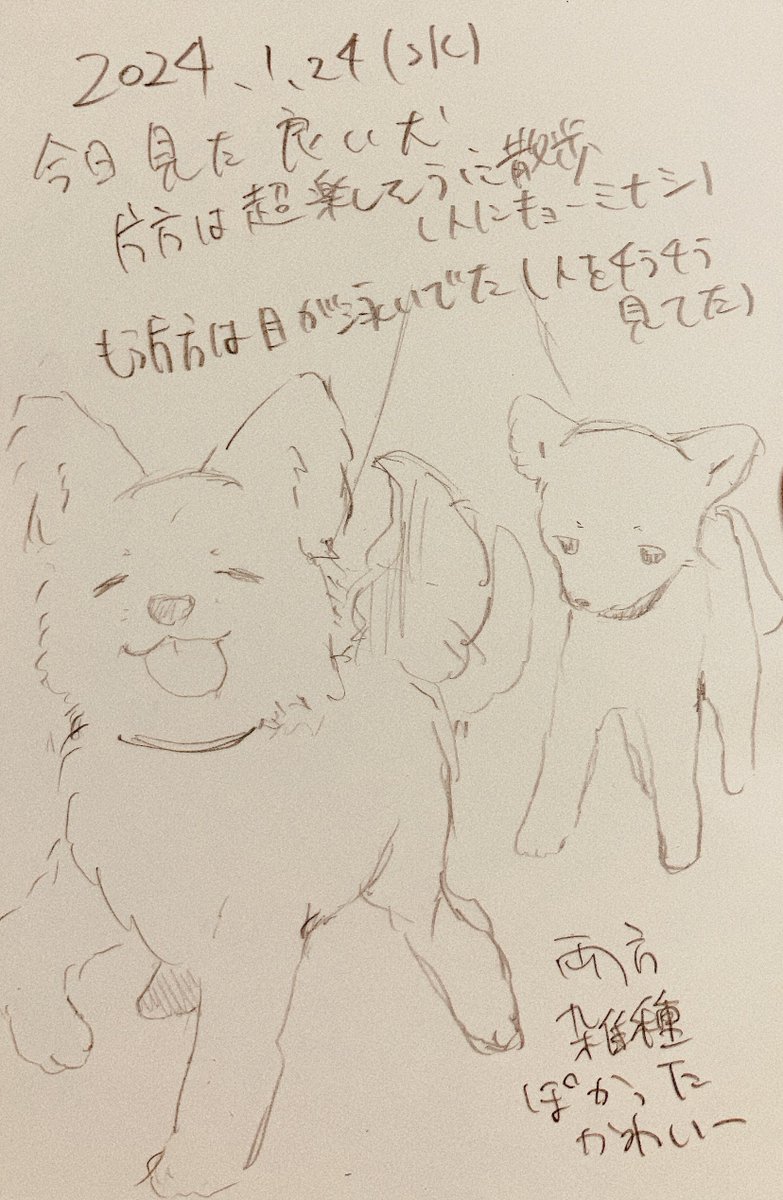 2024、1、24(水)
今日見た良い犬
片方は超楽しそうに散歩
(人にキョーミナシ)
もう片方は目が泳いでた(人をチラチラ
見てた)
両方
雑種
ぽかった
かわいー